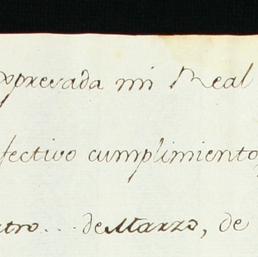 expresada mi Real
fectivo cumplimiento,
atro... de Marzo, de